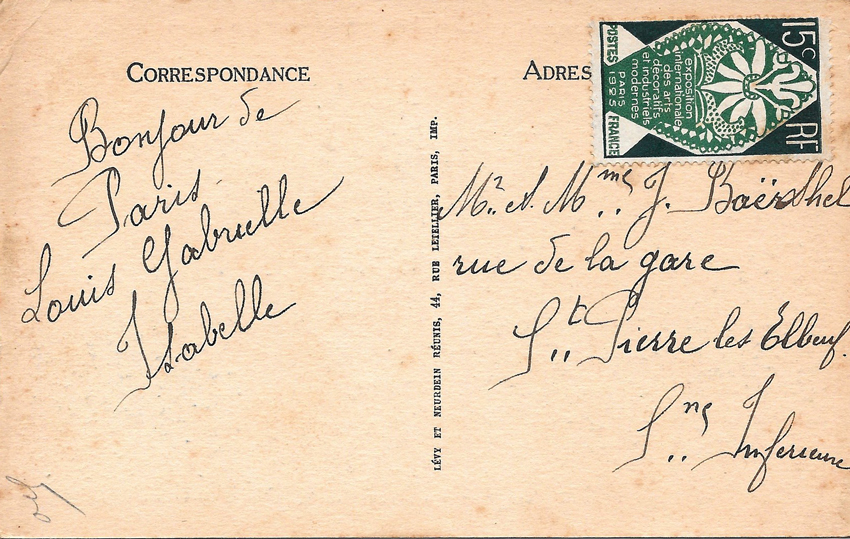 CORRESPONDANCE
Bonjour de
Paris
Louis Gabrielle
Isabelle
LÉVY ET NEURDEIN RÉUNIS, 44, RUE LETELLIER, PARIS, IMP.
ADRES
15c
RF
POSTES FRANCE
PARIS 1925
exposition
internationale
des arts
décoratifs
et industriels
modernes
Mr. et Mme. J.
rue de la gare
St. Pierre les Elbeuf.
Sne. Inferieure